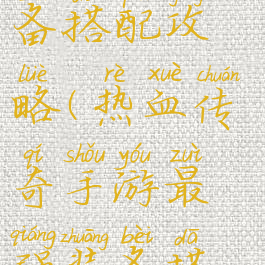 备搭配攻
lüè rè xuè chuán
略(热血传
qí shǒu yóu zuì
奇手游最
qiáng zhuāng bèi dā
强装备搭